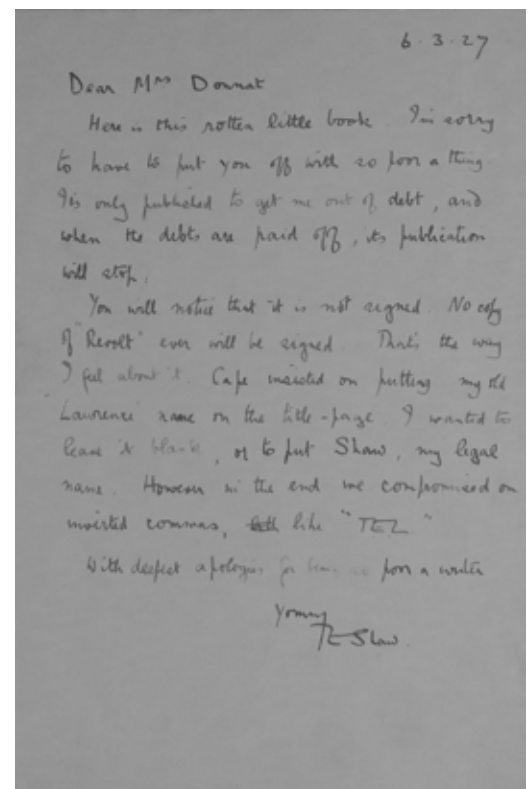 6.3.27
Dear Mrs Donnat
Here is this rotten little book. I'm sorry
to have to put you off with so poor a thing.
It's only published to get me out of debt, and
when the debts are paid off, its publication
will stop.
You will notice that it is not signed. No copy
of "Revolt" ever will be signed. That's the way
I feel about it. Cape insisted on putting my old
"Lawrence" name on the title-page. I wanted to
leave it blank, or to put Shaw, my legal
name. However in the end we compromised on
inverted commas, like "TEL."
With deepest apologies for being so poor a writer
Yours
TE Shaw.